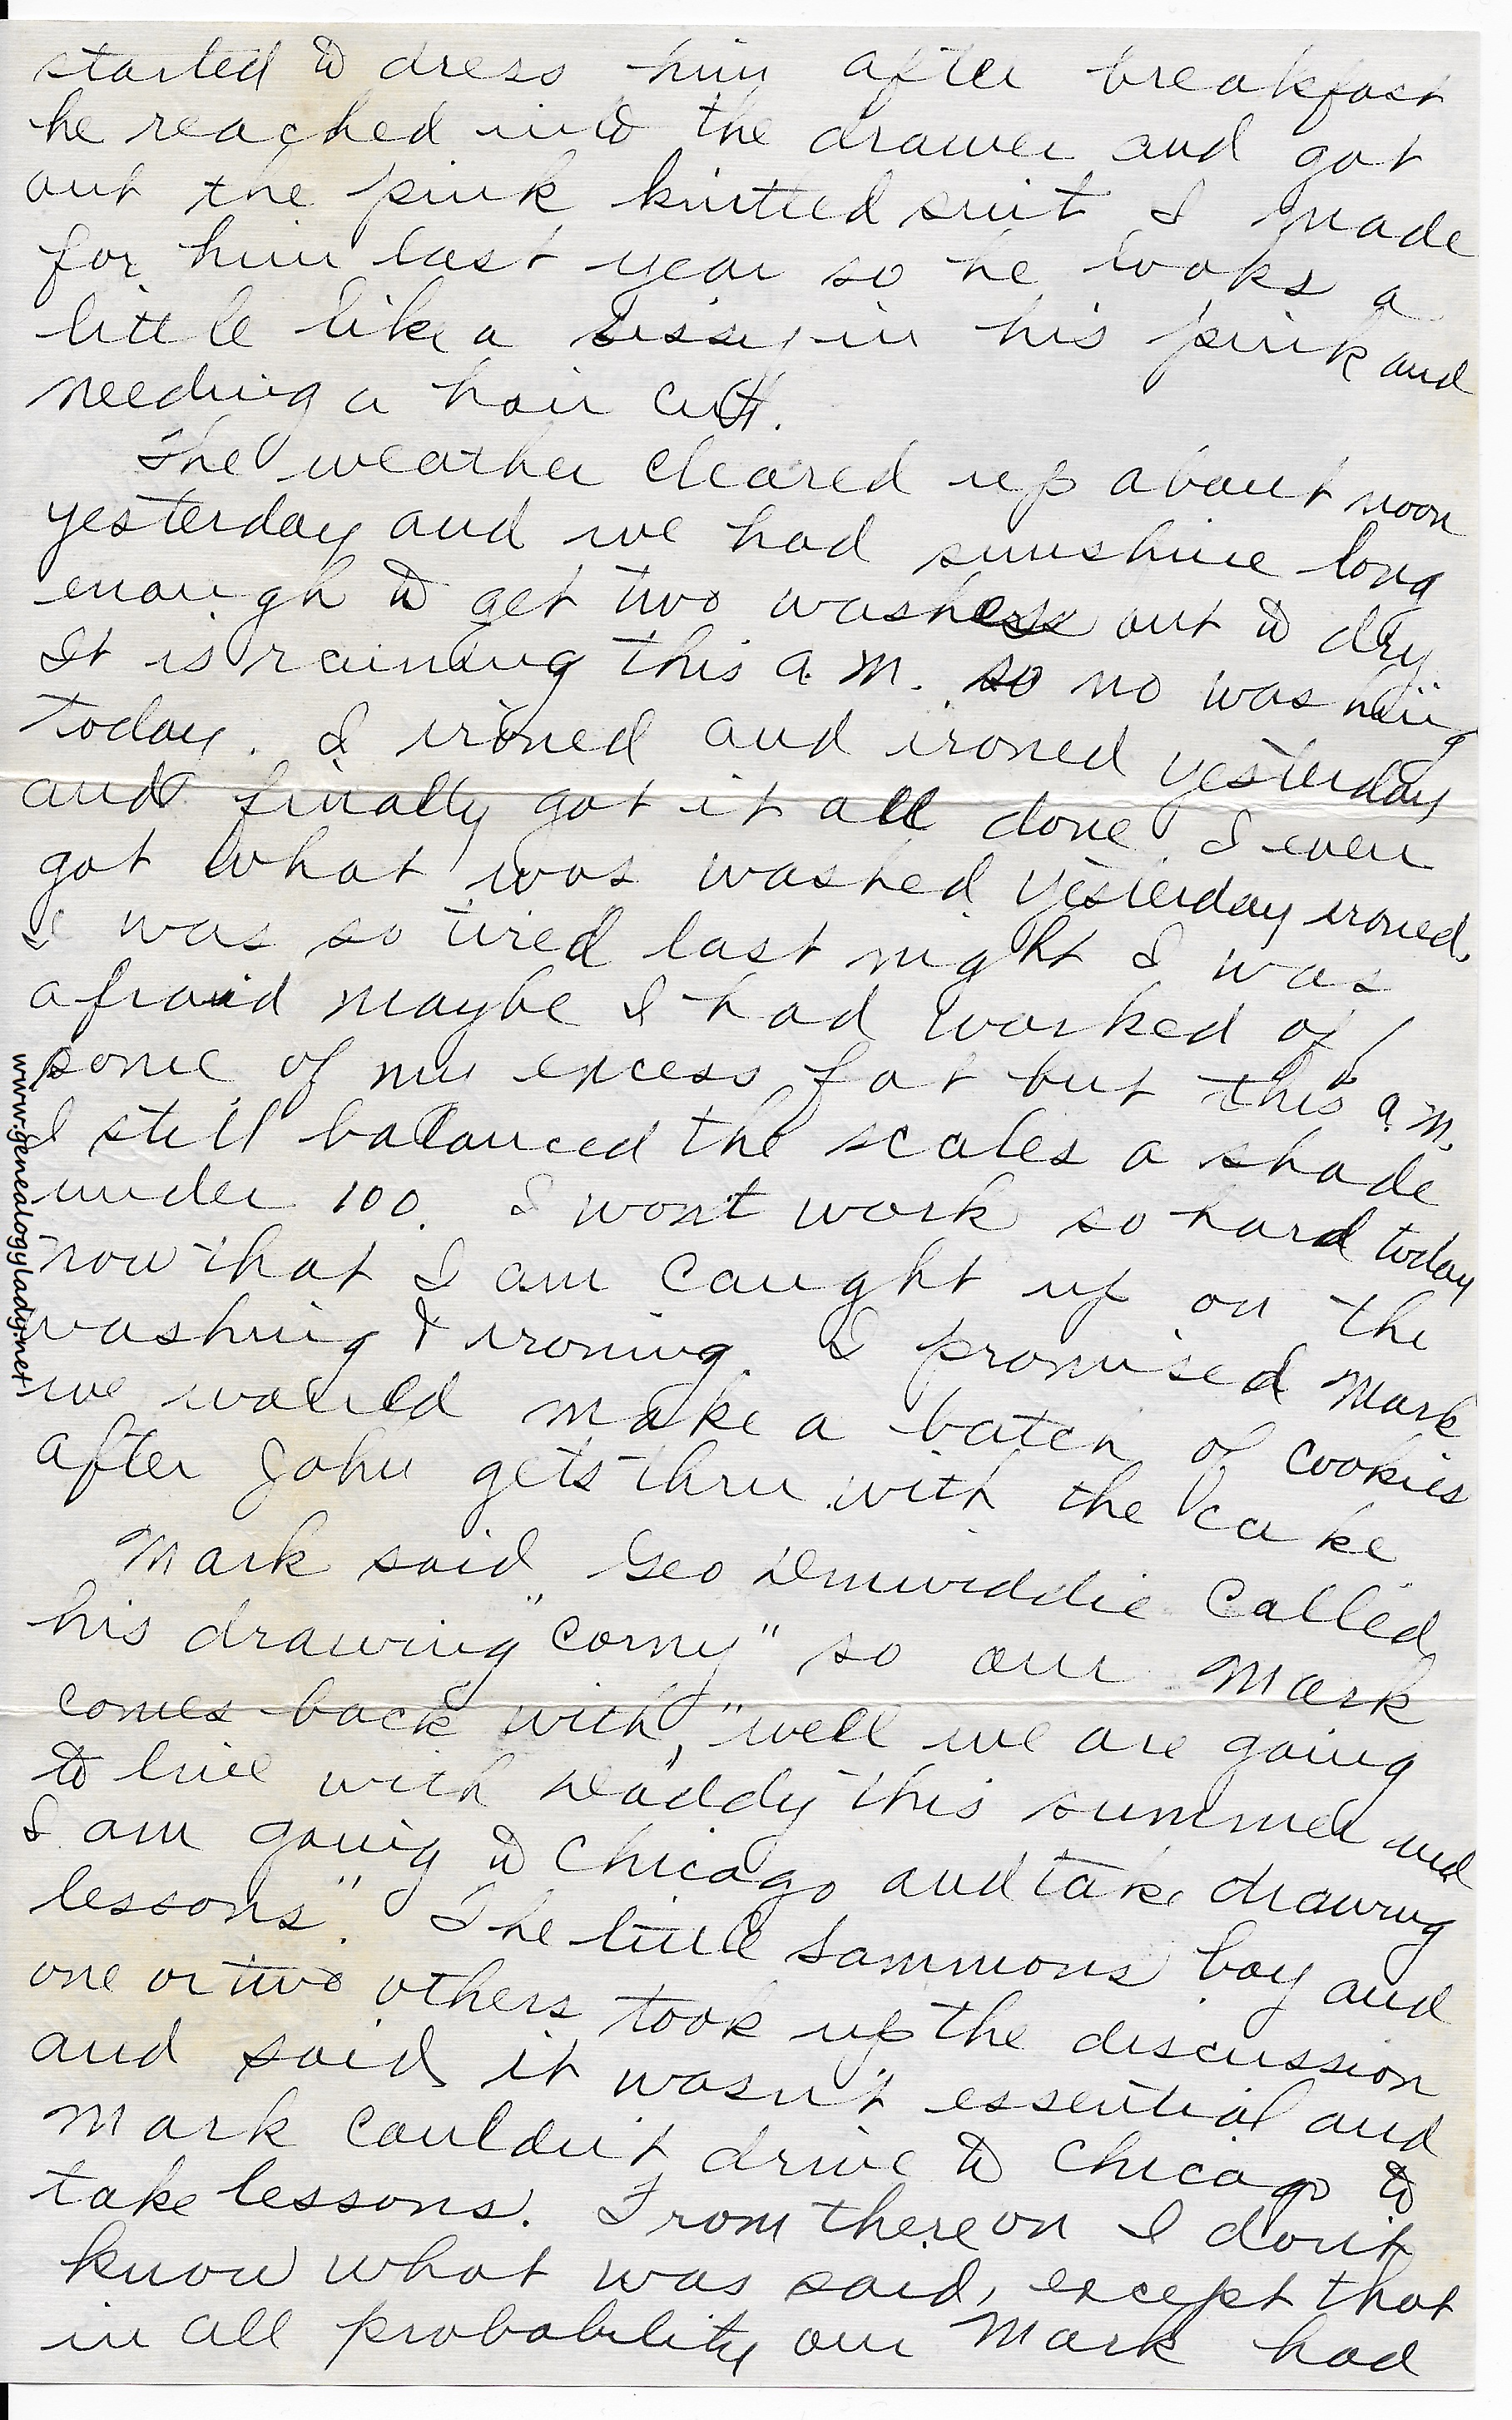 started to dress him after breakfast
he reached into the drawer and got
out the pink knitted suit I made
for him last year so he looks a
little like a sissy in his pink and
needing a hair cut.
The weather cleared up about noon
yesterday and we had sunshine long
enough to get two washes out to dry
It is raining this a.m. so no washing
today. I ironed and ironed yesterday
and finally got it all done. I even
got what was washed yesterday ironed.
I was so tired last night I was
afraid maybe I had worked off
some of my excess fat but this a.m.
I still balanced the scales a shade
under 100. I wont work so hard today
now that I am caught up on the
washing & ironing. I promised Mark
we would make a batch of cookies
after John gets thru with the cake
Mark said Geo Dinwiddie called
his drawing "corny" so our Mark
comes back with, "well we are going
to live with Daddy this summer and
I am going to Chicago and take drawing
lessons". The little Sammons boy and
one or two others took up the discussion
and said it wasn't essential and
Mark couldn't drive to Chicago to
take lessons. From there on I don't
know what was said, except that
in all probability our Mark had
www.genealogylady.net